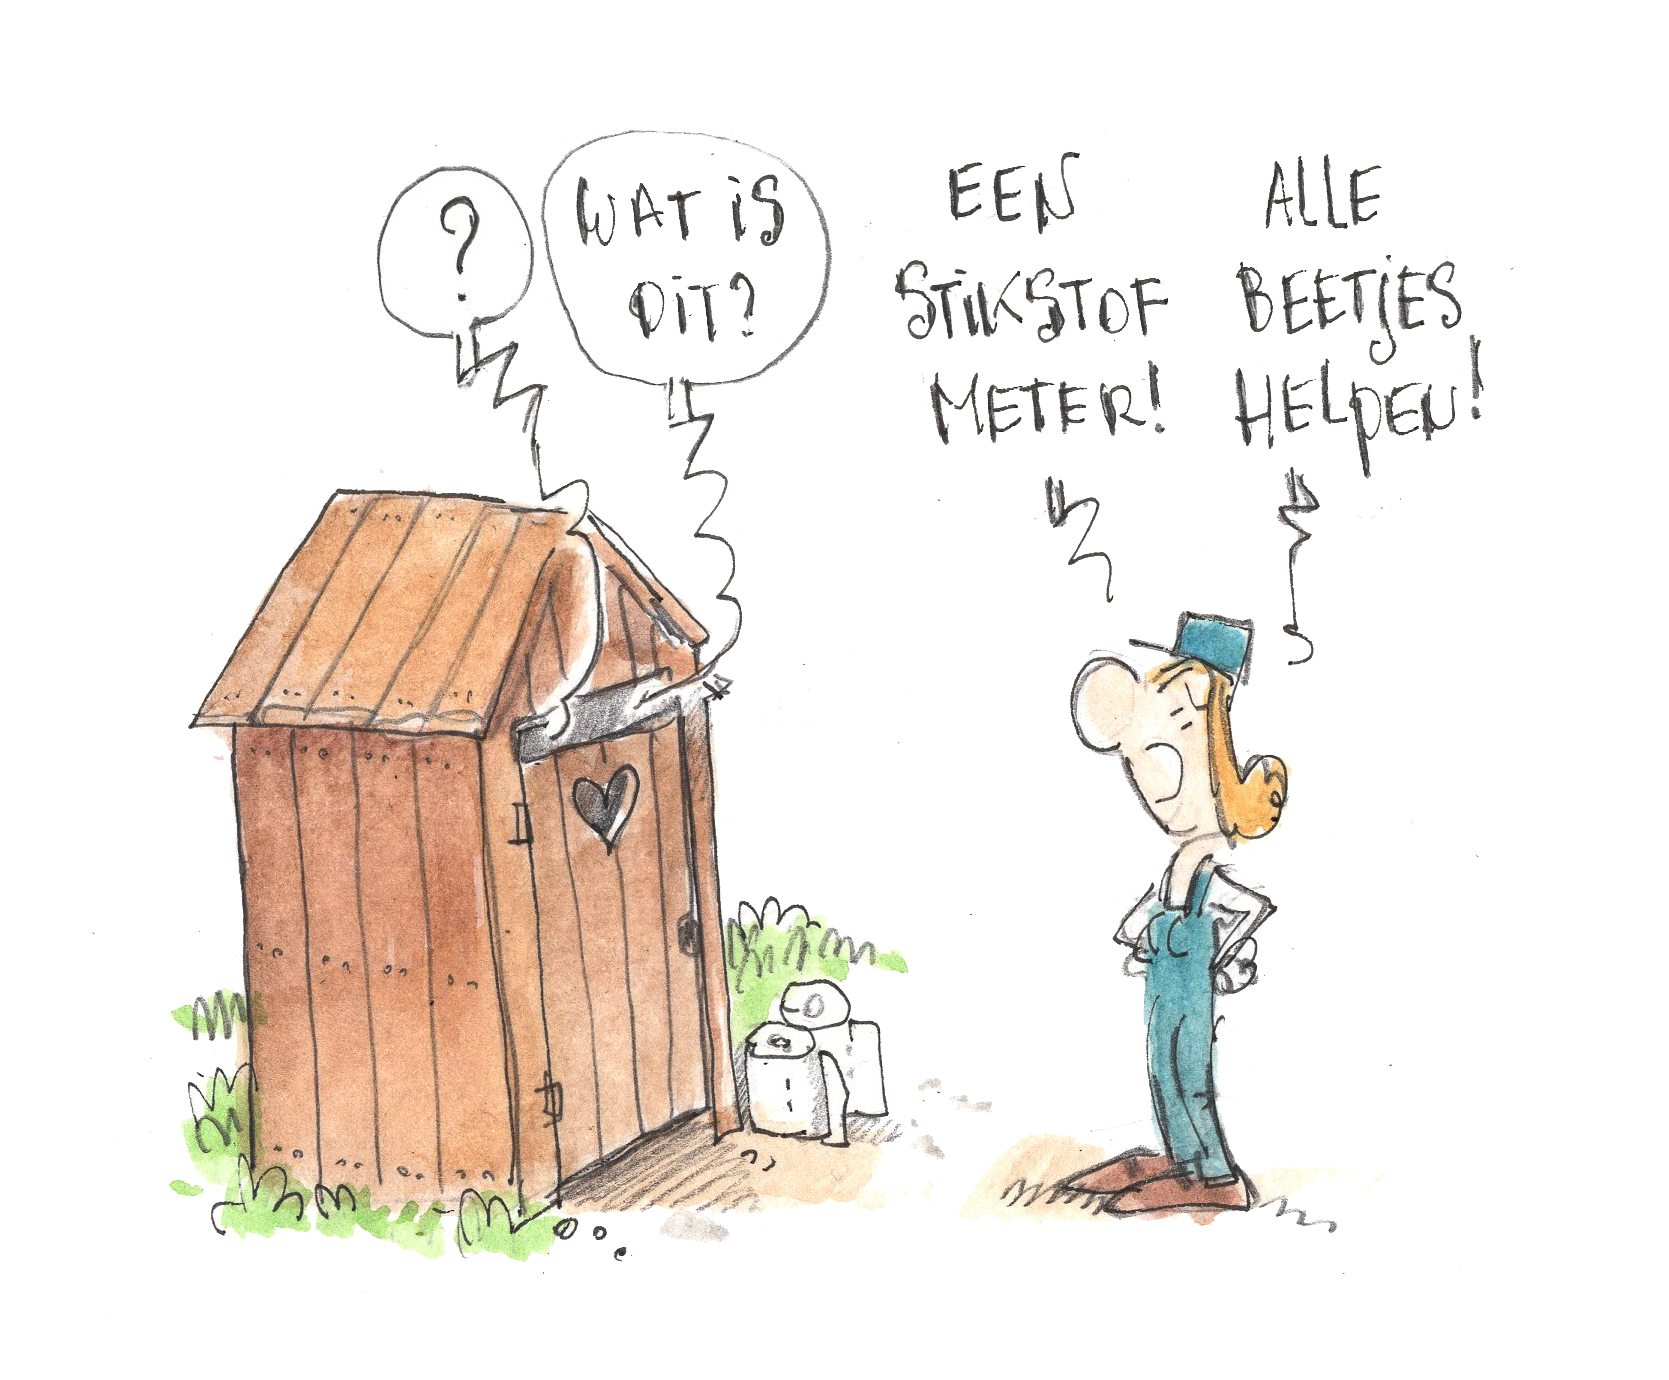 ?
WAT iS
DiT?
EEN
STiKSTOF
METER!
ALLE
BEETjES
HELpEN!